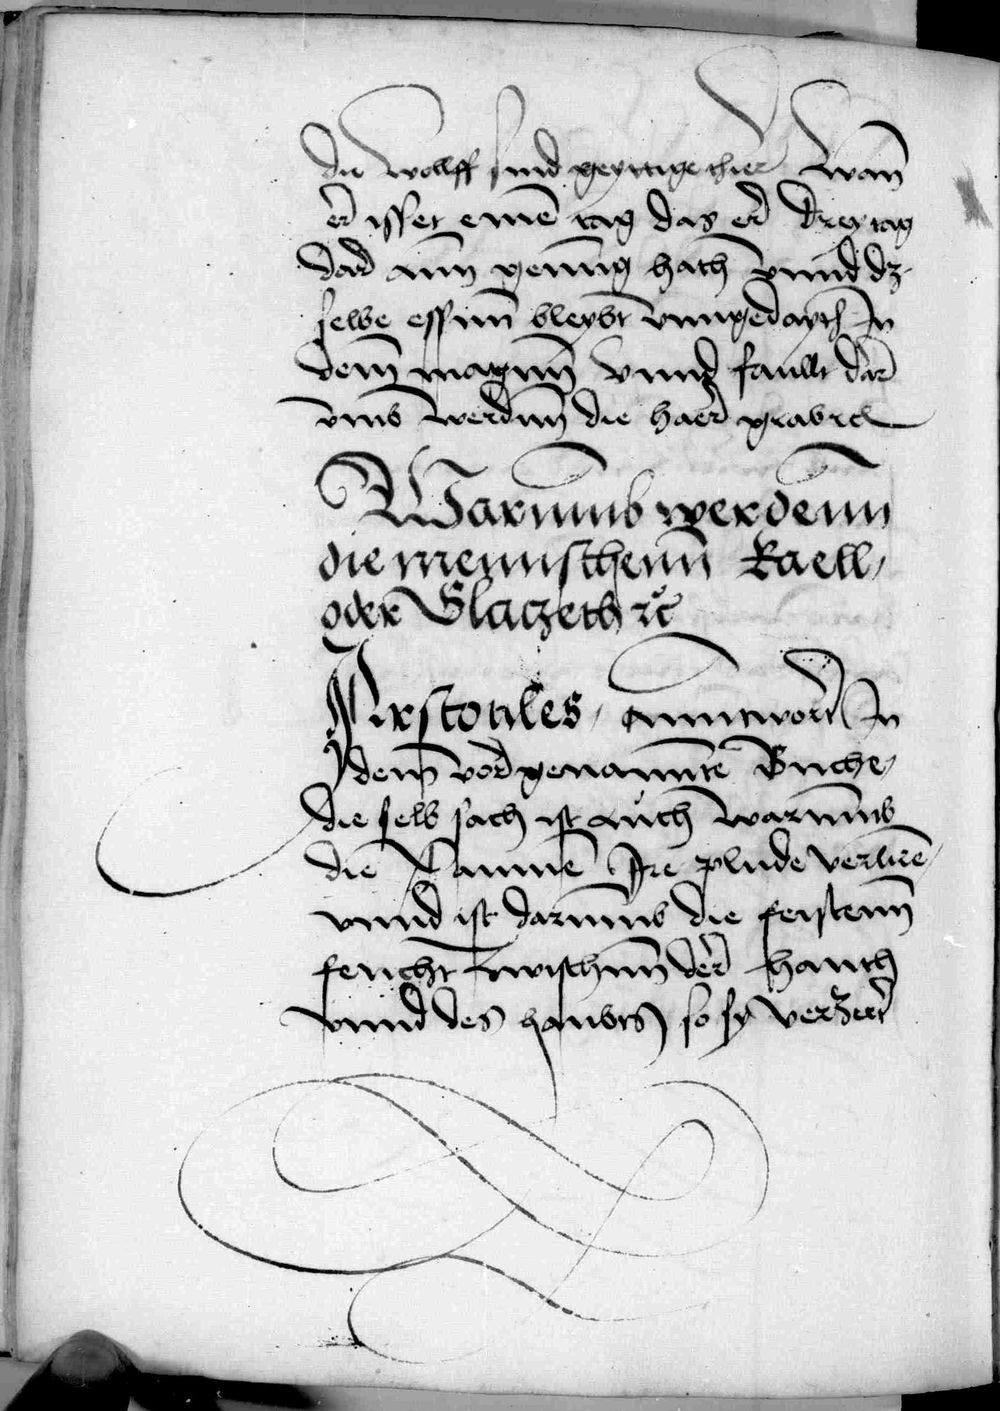 die wolff sind geyttige thier Wan̅
er isset eine̅ tag das er drey tag
dar ann genung hath vnnd dz
selbe essenn bleybt vnngedayth In
dem magenn vnnd faullt dar
vmb werdenn die haer grab rc
Warumb werdenn
die mennschenn Kaell,
oder Glatzeth rc
Arstotiles, anntwort In
dem vorgenannte̅ Buche,
die selb sach ist auch warumb
die Paume Ire plude verlire̅,
vnnd ist darumb die feistenn
feucht zwischenn der hauth
vnnd des haubts so sy verzert